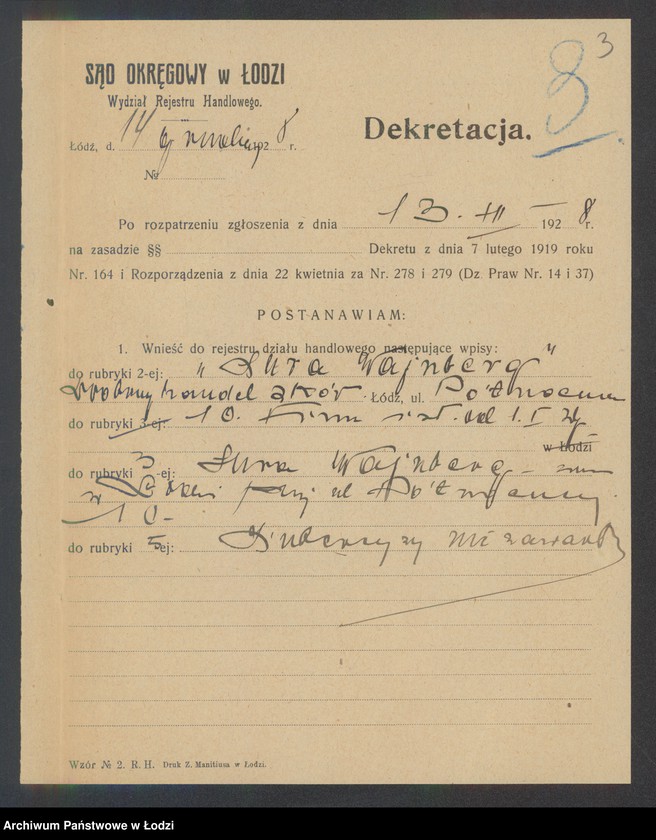 3
8
SĄD OKRĘGOWY w ŁODZI
Wydział Rejestru Handlowego.
Dekretacja.
Łódź, d. 14 grudnia 1928 r.
№
Po rozpatrzeniu zgłoszenia z dnia 13. XII 1928 r.
na zasadzie §§ Dekretu z dnia 7 lutego 1919 roku
Nr. 164 i Rozporządzenia z dnia 22 kwietnia za Nr. 278 i 279 (Dz. Praw Nr. 14 i 37)
POSTANAWIAM:
1. Wnieść do rejestru działu handlowego następujące wpisy:
do rubryki 2-ej: "Sura Wajnberg"
Drobny handel skór Łódź, ul. Północna
do rubryki 3-ej: 10. Firma ist. od 1. I
w Łodzi
do rubryki 3-ej: Sura Wajnberg - zam
w Łodzi przy ul Północnej
10-
do rubryki 5ej: Intercyzy nie zawarła
Wzór № 2. R. H. Druk Z. Manitiusa w Łodzi.
Archiwum Państwowe w Łodzi